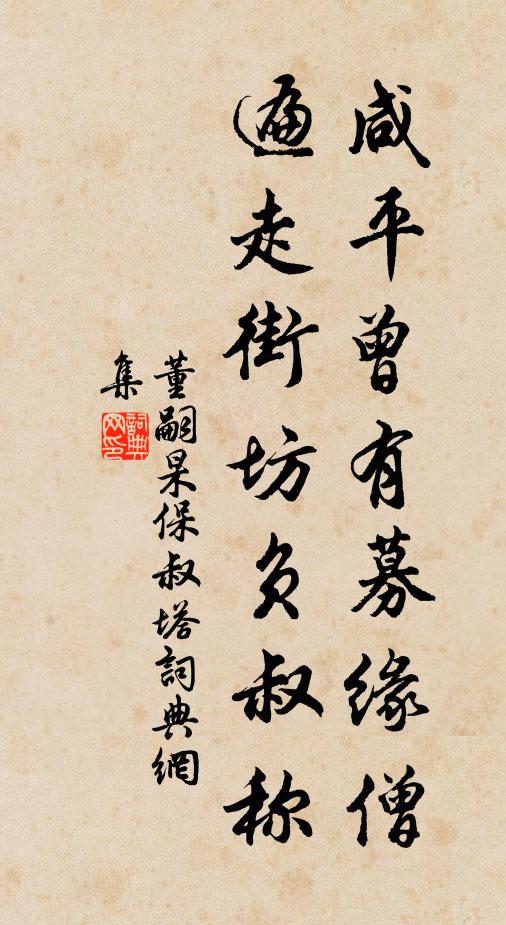 咸平曾有募缘僧
遍走街坊负叔称
董嗣杲保叔塔詞典網
集
詞典网印